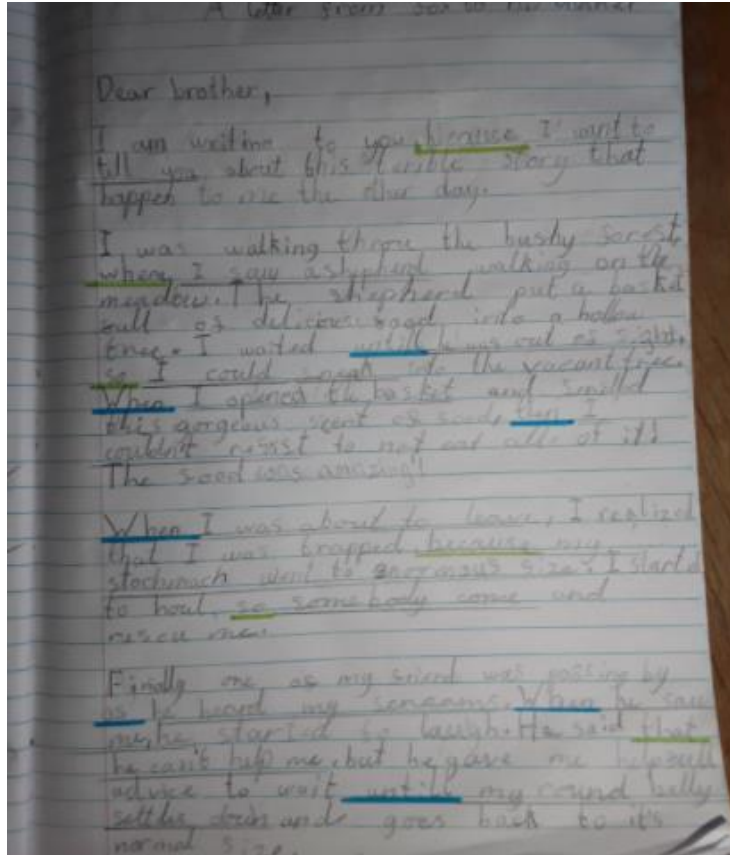 A letter from fox to his
Dear brother,
I am writing to you because I want to
tell you about this terible story that
happen to me the other day.
I was walking throu the bushy forest,
where I saw a shepherd walking on the
meadow. The shepherd put a basket
full of delicious food into a hollow
tree. I waited untill he was out of sight,
so I could into the vacant tree.
When I opened the basket and smilld
this gorgeous scent of food, then I
couldn't resist to not eat all of it!
The food was amazing!
When I was about to leave, I realized
that I was trapped because my
went to enormous size. I started
to howl, so somebody come and
rescu me.
Finally one of my friend was passing by
as he heard my screams. When he saw
me, he started to laugh. He said that
he can't help me, but he gave me helpfull
advice to wait untill my round belly
settles down and goes back to it's
normal size.